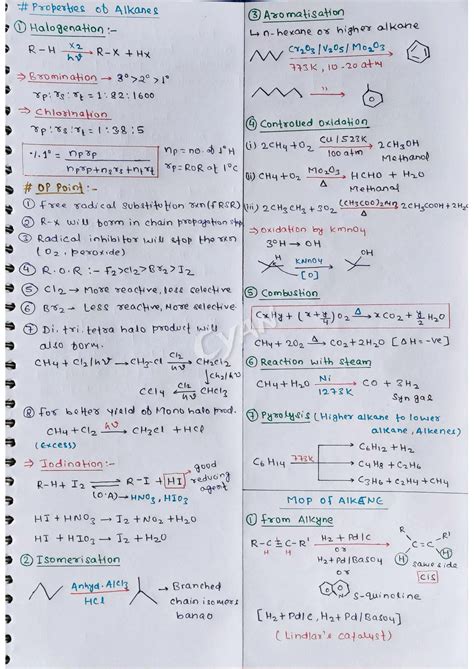 # Properties of Alkanes
① Halogenation:-
R-H X2/hν → R-X + Hx
⇒ Bromination → 3°>2°>1°
rp:rs:rt = 1:82:1600
⇒ Chlorination
rp:rs:rt = 1:38:5
%1° = nprp / nprp+nsrs+ntrt
np = no. of 1°H
rp = ROR at 1°C
# OP Point:-
① free radical substitution rxn (FRSR)
② R-X will form in chain propagation step
③ Radical inhibitor will stop the rxn
(O2, peroxide)
④ R.O.R :- F2>Cl2>Br2>I2
⑤ Cl2 → More reactive, less selective
⑥ Br2 - Less reactive, More selective
⑦ Di, tri, tetra halo product will
also form.
CH4 + Cl2/hν → CH3Cl Cl2/hν → CH2Cl2
↓ Cl2/hν
CCl4 ← Cl2/hν CHCl3
⑧ for better yield of Mono halo prod.
CH4 + Cl2 hν → CH3Cl + HCl
(Excess)
⇒ Iodination:-
R-H + I2 ⇌ R-I + HI → good reducing agent
(O.A) → HNO3, HIO3
HI + HNO3 → I2 + NO2 + H2O
HI + HIO3 → I2 + H2O
② Isomerisation
Anhyd. AlCl3
HCl
→ Branched
chain isomers
banao
③ Aromatisation
↳ n-hexane or higher alkane
Cr2O3/V2O5/Mo2O3
773K, 10-20 atm
"
④ Controlled Oxidation
(i) 2CH4 + O2 Cu/523K 100 atm → 2CH3OH
Methanol
(ii) CH4 + O2 Mo2O3 Δ → HCHO + H2O
Methanal
(iii) 2CH3CH3 + 3O2 (CH3COO)2Mn Δ → 2CH3COOH + 2H2O
⇒ Oxidation by KMnO4
3°H → OH
H KMnO4 [O] → OH
⑤ Combustion
CxHy + (x+y/4)O2 Δ → xCO2 + y/2 H2O
CH4 + 2O2 Δ → CO2 + 2H2O [ΔH = -ve]
⑥ Reaction with steam
CH4 + H2O Ni 1273K → CO + 3H2
Syn gas
⑦ Pyrolysis (Higher alkane to lower
alkane, Alkenes)
C6H14 773K
→ C6H12 + H2
→ C4H8 + C2H6
→ C3H6 + C2H4 + CH4
MOP of AlKENE
① from Alkyne
R-C≡C-R' H2 + Pd/C or H2 + Pd/BaSO4
R R' C=C H H
same side
CIS
S-quinoline
[H2 + Pd/C, H2 + Pd/BaSO4]
(Lindlar's catalyst)